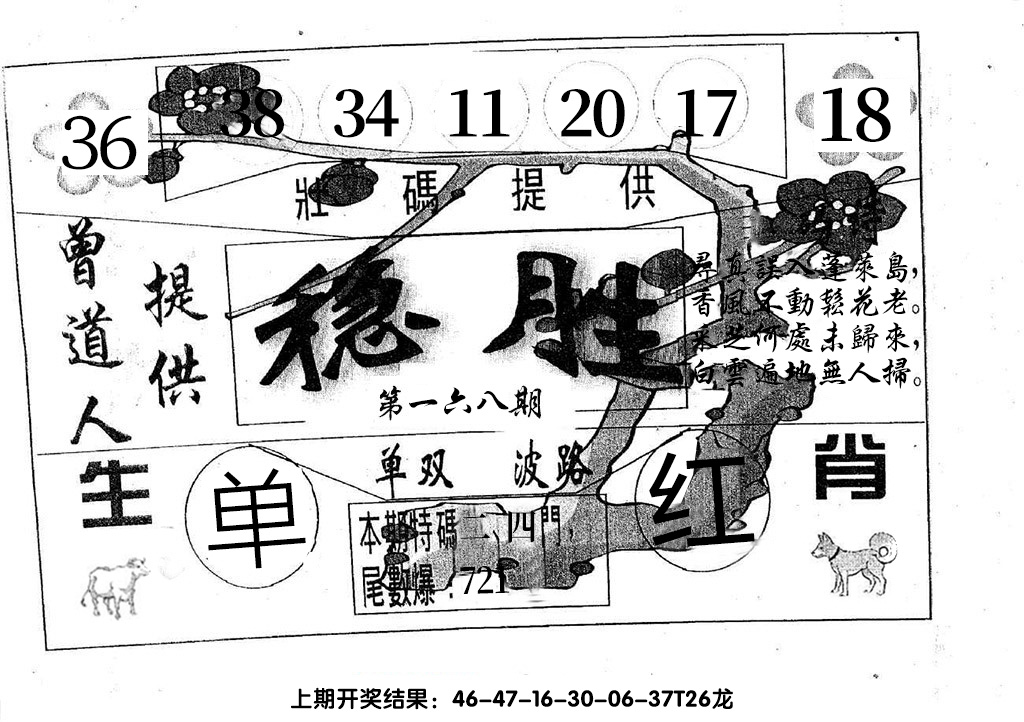 36 38 34 11 20 17 18
壯碼提供
曾道人
提供
稳胜
第一六八期
尋真誤入蓬萊島，
香風不動鬆花老。
采芝何處未歸來，
白雲遍地無人掃。
生肖
单双 波路
单 红
本期特碼二、四門，
尾數爆：721
上期开奖结果：46-47-16-30-06-37T26龙